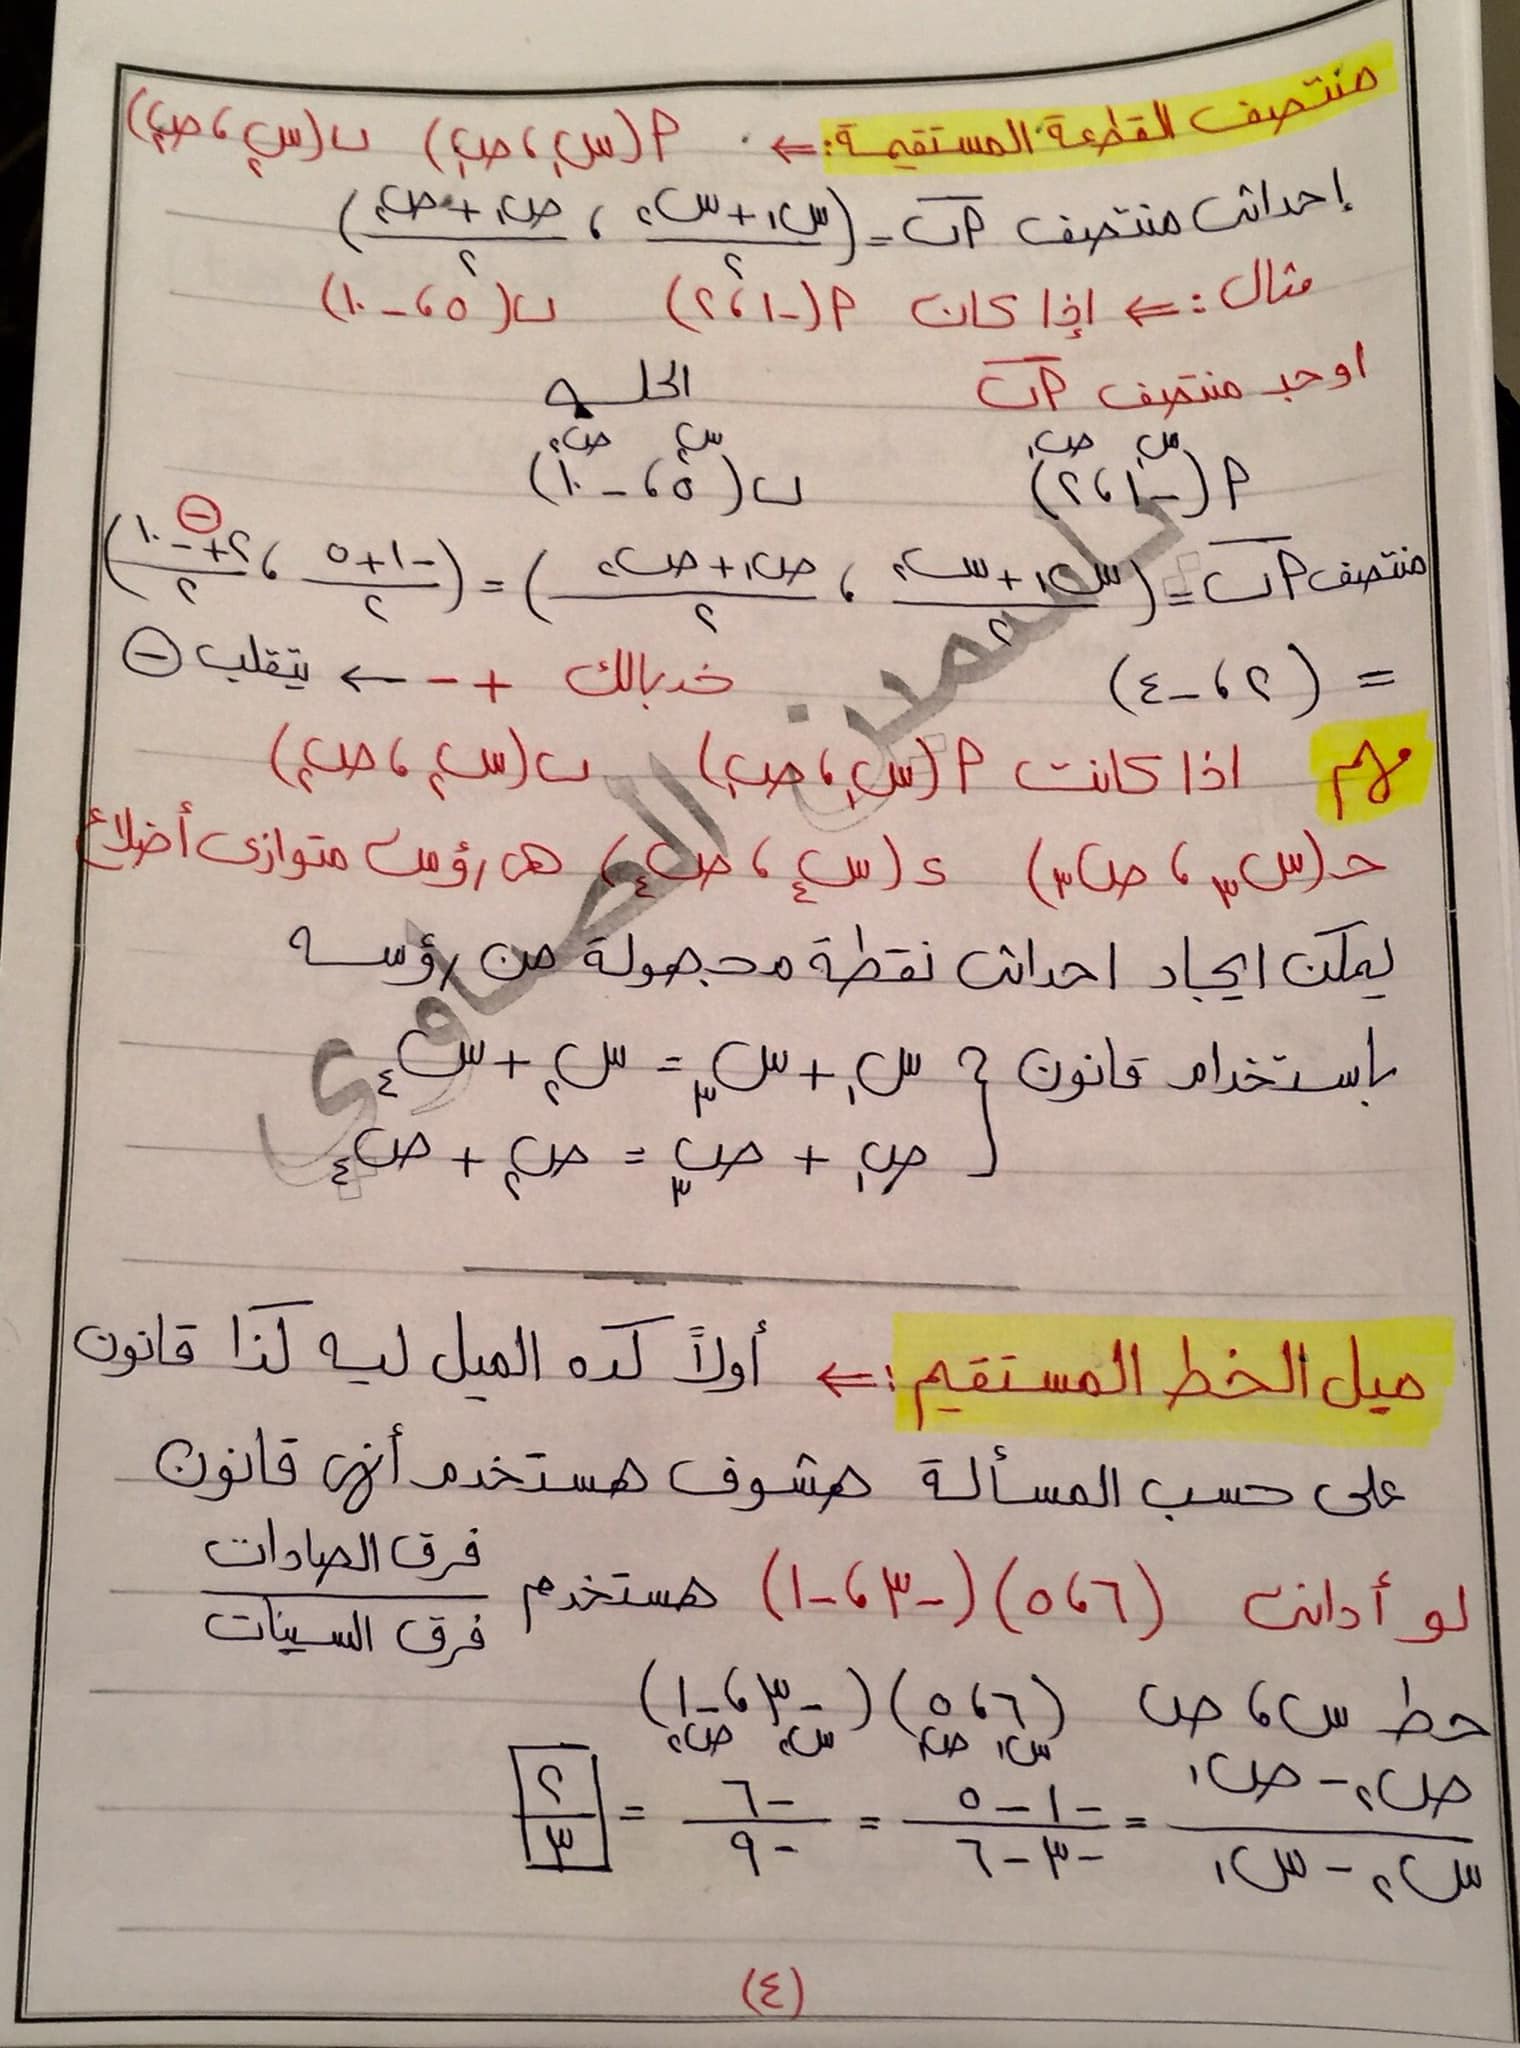 منتصف القطعة المستقيمة: ⇐ P(س١، ص١) ب(س٢، ص٢)
إحداثى منتصف Pب = (س١+س٢/٢ ، ص١+ص٢/٢)
مثال: ⇐ إذا كان P(-١، ٢) ب(٥، -١٠)
اوجد منتصف Pب
الحلــه
س١ ص١ س٢ ص٢
P(-١، ٢) ب(٥، -١٠)
منتصف Pب = (س١+س٢/٢ ، ص١+ص٢/٢) = (-١+٥/٢ ، ٢+-١٠/٢) ⊖
= (٢، -٤) خد بالك + - ← يتقلب ⊖
مهم اذا كانت P(س١، ص١) ب(س٢، ص٢)
حـ(س٣، ص٣) ء(س٤، ص٤) هى رؤس متوازى أضلاع
يمكن ايجاد احداثى نقطة مجهولة من رؤسه
باستخدام قانون } س١ + س٣ = س٢ + س٤
ص١ + ص٣ = ص٢ + ص٤
ميل الخط المستقيم: ⇐ أولاً كده الميل ليه كذا قانون
على حسب المسألة هشوف هستخدم أنهى قانون
لو أدانى (٦، ٥) (-٣، -١) هستخدم فرق الصادات/فرق السينات
حط س، ص (٦، ٥) (-٣، -١)
س١ ص١ س٢ ص٢
ص٢ - ص١/س٢ - س١ = -١-٥/-٣-٦ = -٦/-٩ = ٢/٣
(٤)
ياسمين الصاوي